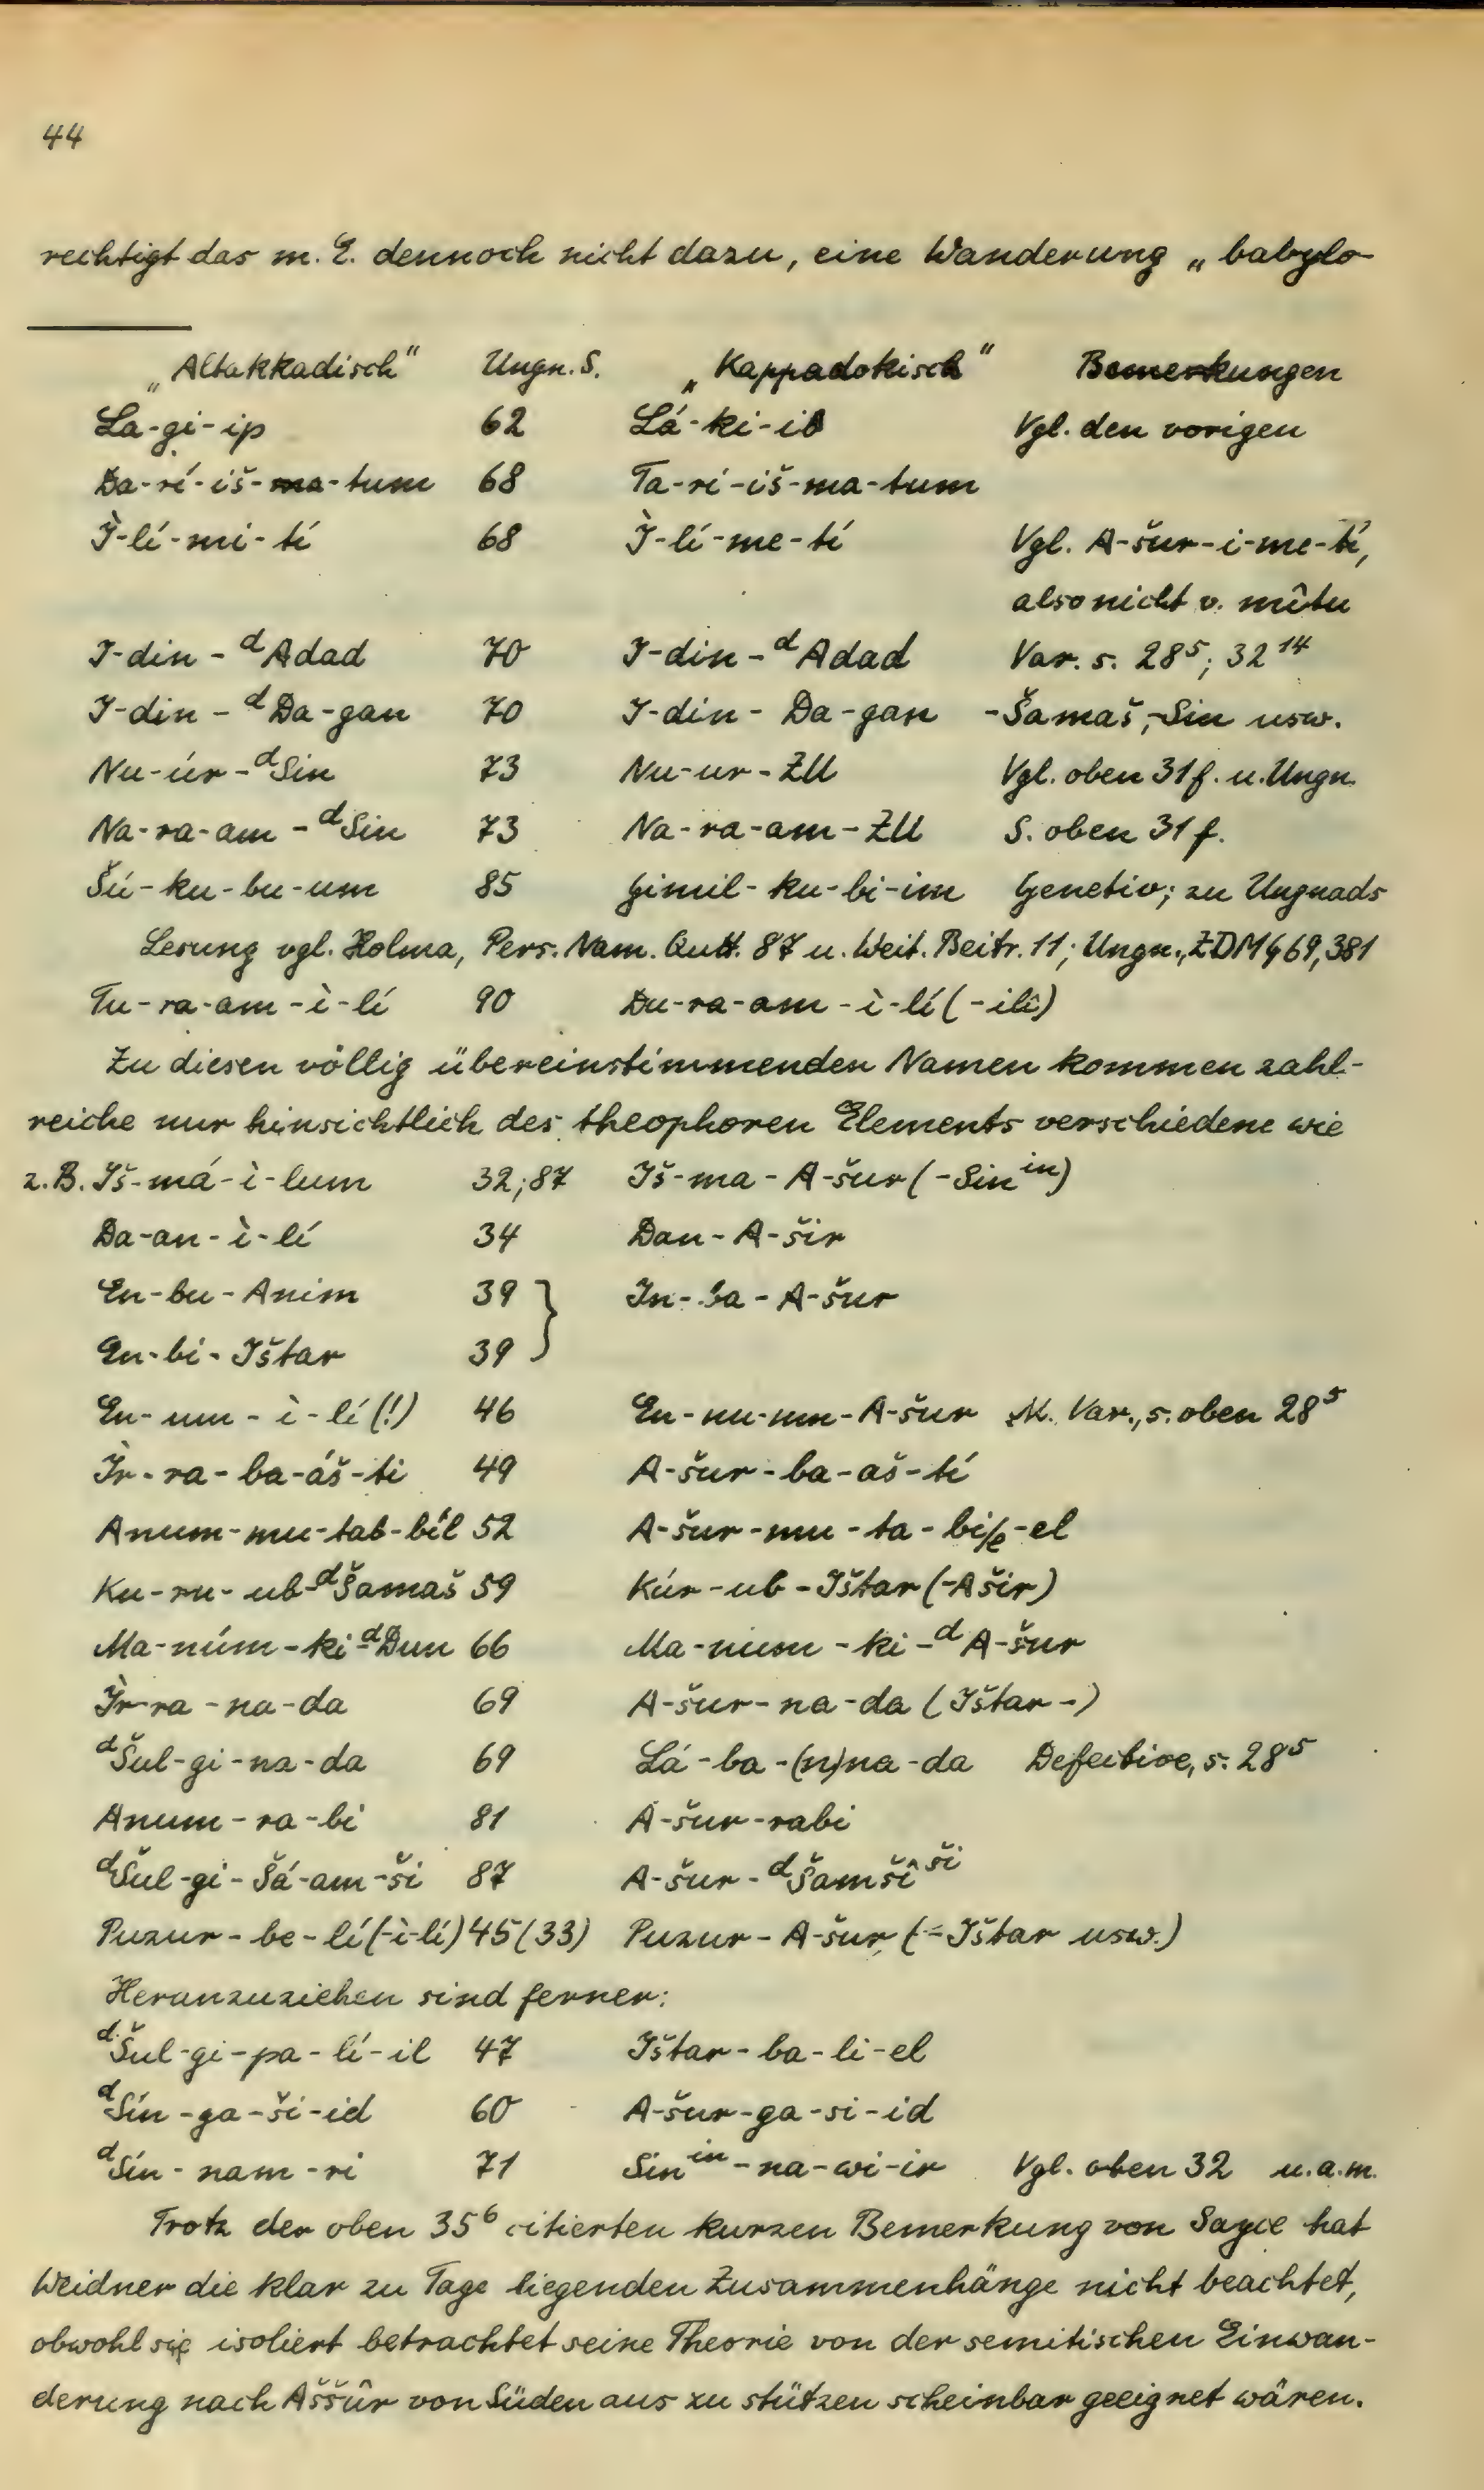 44
rechtigt das m. E. dennoch nicht dazu, eine Wanderung „babylo-
„Altakkadisch" Ungn. S. „Kappadokisch" Bemerkungen
La-gi-ip 62 Lá-ki-ib Vgl. den vorigen
Da-rí-iš-ma-tum 68 Ta-rí-iš-ma-tum
Ì-lí-mi-tí 68 Ì-lí-me-tí Vgl. A-šur-i-me-tí,
also nicht v. mîtu
I-din-ᵈAdad 70 I-din-ᵈAdad Var. s. 28⁵; 32¹⁴
I-din-ᵈDa-gan 70 I-din-Da-gan -Šamaš, -Sin usw.
Nu-úr-ᵈSin 73 Nu-ur-ZU Vgl. oben 31 f. u. Ungn.
Na-ra-am-ᵈSin 73 Na-ra-am-ZU S. oben 31 f.
Šú-ku-bu-um 85 Gimil-ku-bi-im Genetiv; zu Ungnads
Lesung vgl. Holma, Pers. Nam. Qutt. 87 u. Weit. Beitr. 11; Ungn., ZDMG 69, 381
Tu-ra-am-ì-lí 90 Du-ra-am-ì-lí (-ilî)
Zu diesen völlig übereinstimmenden Namen kommen zahl-
reiche nur hinsichtlich des theophoren Elements verschiedene wie
z. B. Iš-má-ì-lum 32; 87 Iš-ma-A-šur (-Sinⁱⁿ)
Da-an-ì-lí 34 Dan-A-šir
En-bu-Anim 39 } In-ba-A-šur
En-bi-Ištar 39
En-um-ì-lí (!) 46 En-nu-um-A-šur M. Var., s. oben 28⁵
Ìr-ra-ba-áš-ti 49 A-šur-ba-aš-tí
Anum-mu-tab-bíl 52 A-šur-mu-ta-bi/e-el
Ku-ru-ub-ᵈŠamaš 59 Kúr-ub-Ištar (-Ašir)
Ma-núm-ki-ᵈDun 66 Ma-num-ki-ᵈA-šur
Ìr-ra-na-da 69 A-šur-na-da (Ištar-)
ᵈŠul-gi-na-da 69 Lá-ba-(n)na-da Defective, s. 28⁵
Anum-ra-bi 81 A-šur-rabi
ᵈŠul-gi-Šá-am-ši 87 A-šur-ᵈŠamšîˢⁱ̌
Puzur-be-lí (-ì-lí) 45 (33) Puzur-A-šur (-Ištar usw.)
Heranzuziehen sind ferner:
ᵈŠul-gi-pa-lí-il 47 Ištar-ba-li-el
ᵈSín-ga-ši-id 60 A-šur-ga-si-id
ᵈSín-nam-ri 71 Sinⁱⁿ-na-wi-ir Vgl. oben 32 u. a. m.
Trotz der oben 35⁶ citierten kurzen Bemerkung von Sayce hat
Weidner die klar zu Tage liegenden Zusammenhänge nicht beachtet,
obwohl sie isoliert betrachtet seine Theorie von der semitischen Einwan-
derung nach Aššûr von Süden aus zu stützen scheinbar geeignet wären.